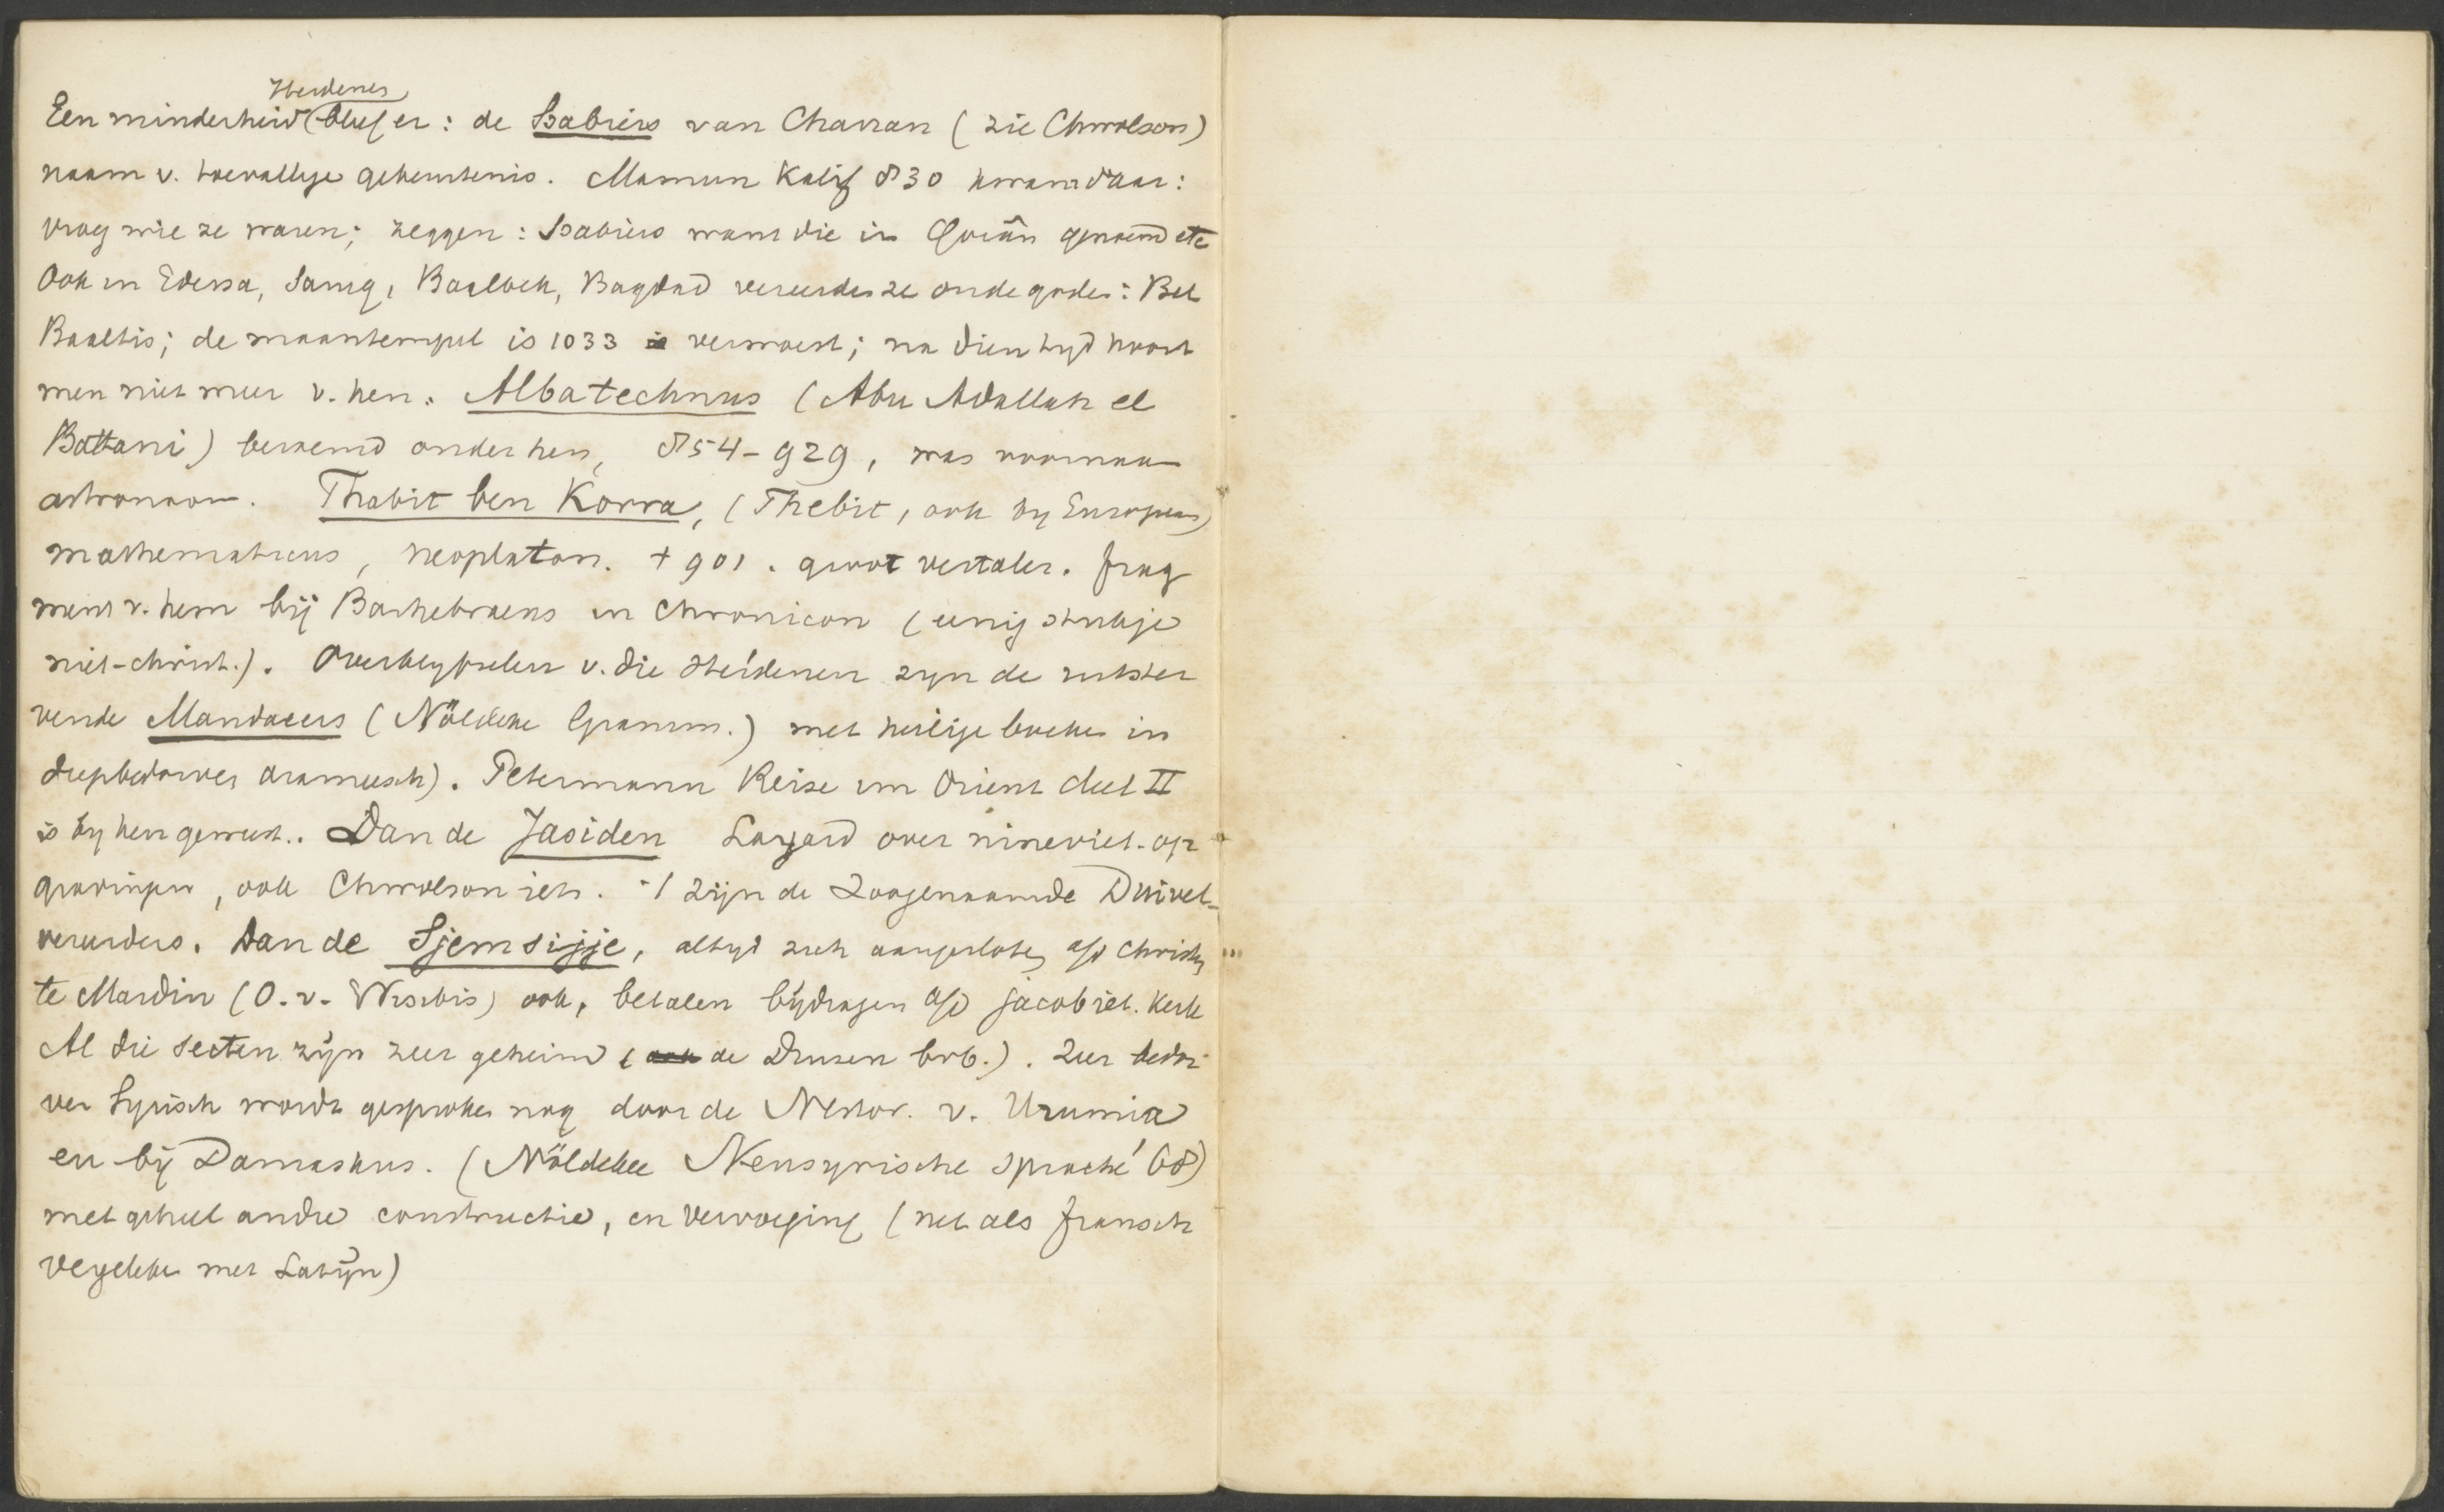 Heidenen
Een minderheid bleef er: de Ssabiërs van Charran (zie Chwolson)
naam v. toevallige gebeurtenis. Mamun Kalif 830 kwam daar:
vroeg wie ze waren; zeggen: Ssabiërs want die in Qorân genoemd etc
Ook in Edessa, Sarug, Baalbek, Bagdad vereerden ze oude goden: Bel
Baaltis; de maantempel is 1033 verwoest; na dien tyd hoort
men niet meer v. hen. Albatechnus (Abu Adallah el
Battani) beroemd onder hen, 854-929, was voornaam
astronoom. Thabit ben Korra, (Thebit, ook by Europeans)
mathematicus, neoplaton. + 901. groot vertaler. frag
ment v. hem bij Barhebraeus in Chronicon (eenig stukje
niet-christ.). Overblyfselen v. die Heidenen zyn de uitster
vende Mandaeers (Nöldeke Gramm.) met heilige boeken in
diepbedorven arameesch). Petermann Reise im Orient deel II
is by hen geweest.. Dan de Jasiden Layard over nineviet. op
gravingen, ook Chwolson iets. zijn de zoogenaamde Duivel-
vereerders. Dan de Sjemsijje, altyd zich aangesloten a/d Christen
te Mardin (O. v. Nisibis) ook, betalen bijdragen a/d jacobiet. kerk
Al die secten zijn zeer geheim (de Drusen bvb.). Zeer bedor
ven Syrisch wordt gesproken nog door de Nestor. v. Urumia
en bij Damaskus. (Nöldeke Neusyrische Sprache '68)
met geheel andre constructie, en vervoeging (net als fransch
vergeleken met Latijn)